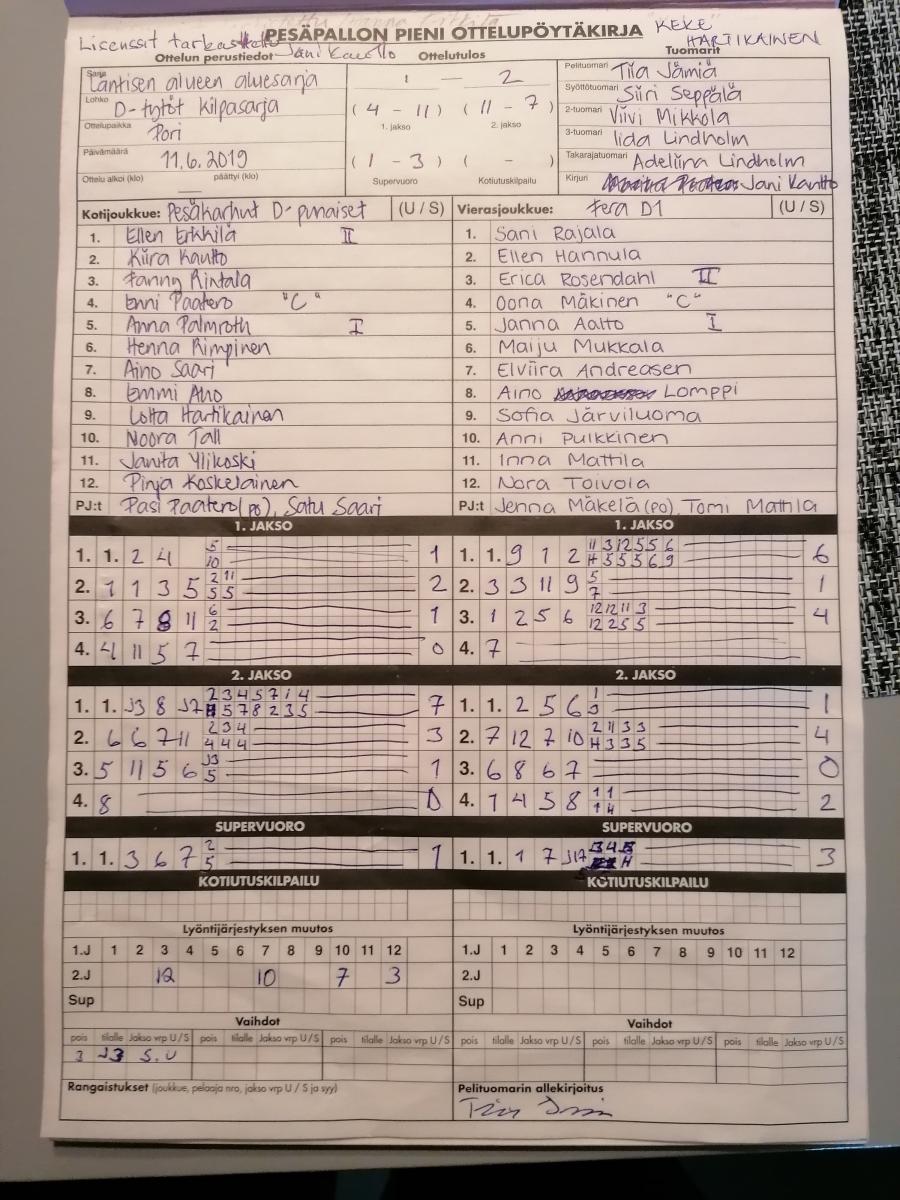 PESÄPALLON PIENI OTTELUPÖYTÄKIRJA
KEKE HARTIKAINEN
Lisenssit Jani Kautto
Ottelun perustiedot
Ottelutulos
Tuomarit
Sarja Läntisen alueen aluesarja
Lohko D-tytöt kilpasarja
Ottelupaikka Pori
Päivämäärä 11.6.2019
Ottelu alkoi (klo) — päättyi (klo)
1 — 2
(4 - 11) (11 - 7)
1. jakso 2. jakso
(1 - 3) ( - )
Supervuoro Kotiutuskilpailu
Pelituomari Tiia Jämiä
Syöttötuomari Siiri Seppälä
2-tuomari Viivi Mikkola
3-tuomari Iida Lindholm
Takarajatuomari Adeliina Lindholm
Kirjuri Jani Kautto
Kotijoukkue: Pesäkarhut D-punaiset (U / S)
1. Ellen Erkkilä II
2. Kiira Kautto
3. Fanny Rintala
4. Enni Paatero "C"
5. Anna Palmroth I
6. Henna Rimpinen
7. Aino Saari
8. Emmi Aho
9. Lotta Hartikainen
10. Noora Tall
11. Janita Ylikoski
12. Pinja Koskelainen
PJ:t Pasi Paatero (po), Satu Saari
Vierasjoukkue: Fera D1 (U / S)
1. Sani Rajala
2. Ellen Hannula
3. Erica Rosendahl II
4. Oona Mäkinen "C"
5. Janna Aalto I
6. Maiju Mukkala
7. Elviira Andreasen
8. Aino Lomppi
9. Sofia Järviluoma
10. Anni Pulkkinen
11. Inna Mattila
12. Nora Toivola
PJ:t Jenna Mäkelä (po), Tomi Mattila
1. JAKSO
1. 1. 2 4 5 10 1
2. 1 1 3 5 2 11 5 5 2
3. 6 7 8 11 6 2 1
4. 4 11 5 7 0
1. JAKSO
1. 1. 9 1 2 11 3 12 5 5 6 4 5 5 5 6 9 6
2. 3 3 11 9 5 7 1
3. 1 2 5 6 12 12 11 3 12 2 5 5 4
4. 7
2. JAKSO
1. 1. J3 8 J7 2 3 4 5 7 1 4 5 7 8 2 3 5 7
2. 6 6 7 11 2 3 4 4 4 4 3
3. 5 11 5 6 J3 5 1
4. 8 0
2. JAKSO
1. 1. 2 5 6 1 3 1
2. 7 12 7 10 2 11 3 3 4 3 3 5 4
3. 6 8 6 7 0
4. 1 4 5 8 1 1 1 4 2
SUPERVUORO
1. 1. 3 6 7 2 5 1
SUPERVUORO
1. 1. 1 7 3 4 3
KOTIUTUSKILPAILU
KOTIUTUSKILPAILU
Lyöntijärjestyksen muutos
1.J 1 2 3 4 5 6 7 8 9 10 11 12
2.J 12 10 7 3
Sup
Lyöntijärjestyksen muutos
1.J 1 2 3 4 5 6 7 8 9 10 11 12
2.J
Sup
Vaihdot
pois tilalle Jakso vrp U / S pois tilalle Jakso vrp U / S pois tilalle Jakso vrp U / S
3 J3 S.U
Vaihdot
pois tilalle Jakso vrp U / S pois tilalle Jakso vrp U / S pois tilalle Jakso vrp U / S
Rangaistukset (joukkue, pelaaja nro, jakso vrp U / S ja syy)
Pelituomarin allekirjoitus